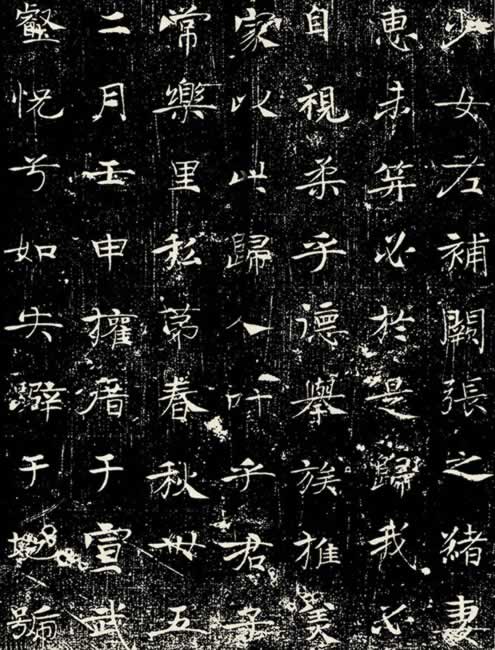 少女右補闕張之緒妻
惠未笄必於是歸我必
自視柔乎德舉族推美
家以此歸人吁乎君子
常樂里私第春秋卌五
二月壬申權厝于宣武
壑怳兮如失于地號